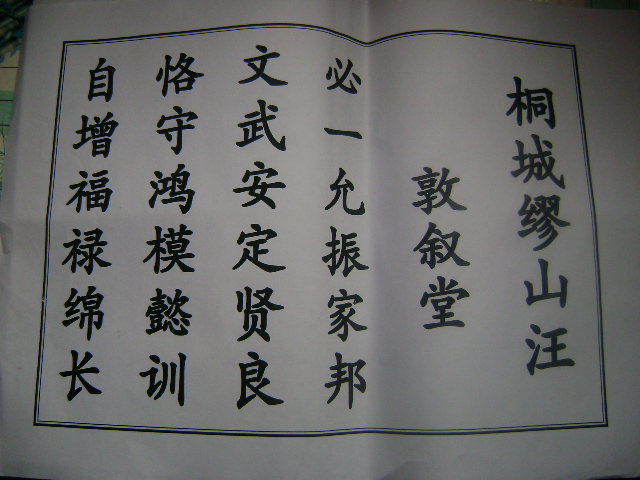 桐城缪山汪
敦叙堂
必一允振家邦
文武安定贤良
恪守鸿模懿训
自增福禄绵长